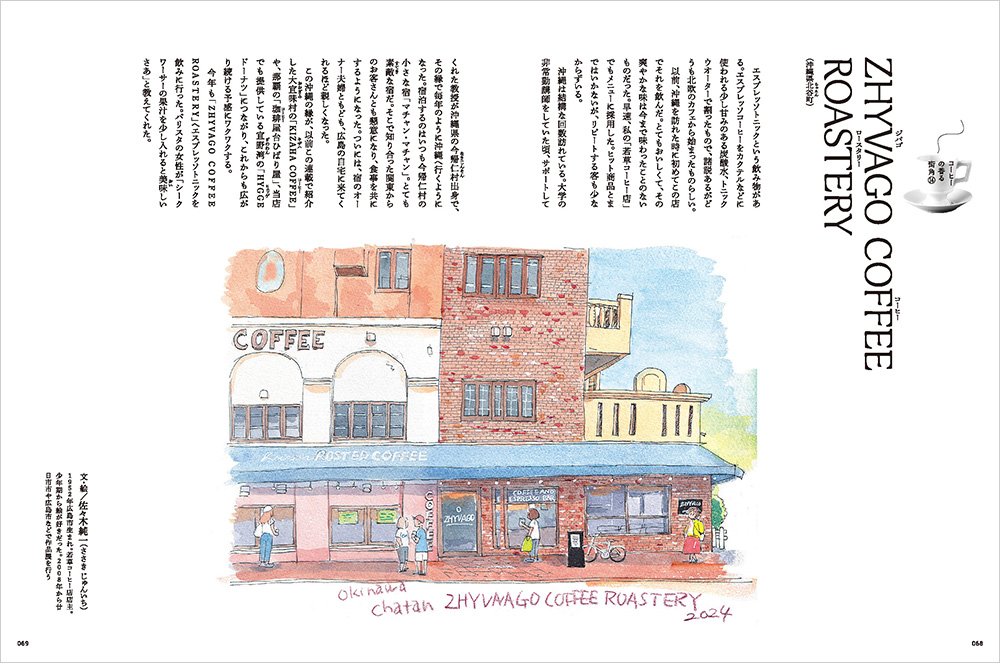 コーヒー
の香る
街角㉔
ZHYVAGO COFFEE
ジバゴ
コーヒー
ROASTERY
ロースタリー
(沖縄県北谷町)
エスプレッソトニックという飲み物があ
る。エスプレッソコーヒーをカクテルなどに
使われる少し甘みのある炭酸水、トニック
ウオーターで割ったもので、諸説あるがど
うも北欧のカフェから始まったものらしい。
以前、沖縄を訪れた時に初めてこの店
でそれを飲んだ。とてもおいしくて、その
爽やかな味は今まで味わったことのない
ものだった。早速、私の「若草コーヒー店」
でもメニューに採用した。ヒット商品とま
ではいかないが、リピートする客も少な
からずいる。
沖縄は結構な回数訪れている。大学の
非常勤講師をしていた頃、サポートして
くれた教授が沖縄県の今帰仁村出身で、
その縁で毎年のように沖縄へ行くように
なった。宿泊するのはいつも今帰仁村の
小さな宿「マチャン・マチャン」。とても
素敵な宿だ。そこで知り合った関東から
のお客さんとも懇意になり、食事を共に
するようになった。ついには、宿のオー
ナー夫婦ともども、広島の自宅に来てく
れるほど親しくなった。
この沖縄の縁が、以前この連載で紹介
した大宜味村の「KIZAHA COFFEE」
や、那覇の「珈琲屋台ひばり屋」、当店
でも提供している宜野湾の「HYGGE
ドーナツ」につながり、これからも広が
り続ける予感にワクワクする。
今年も「ZHYVAGO COFFEE
ROASTERY」へエスプレッソトニックを
飲みに行った。バリスタの女性が「シーク
ワーサーの果汁を少し入れると美味しい
さあ」と教えてくれた。
COFFEE
ROSTED COFFEE
COFFEE
ZHYVAGO
COFFEE AND
ESPRESSO BAR
ZHYVAGO
Okinawa
Chatan ZHYVAAGO COFFEE ROASTERY
2024
文・絵/佐々木純一(ささき じゅんいち)
1952年広島市生まれ。若草コーヒー店店主。
少年期から絵が好きだった。2008年から廿
日市市や広島市などで作品展を行う
069
068